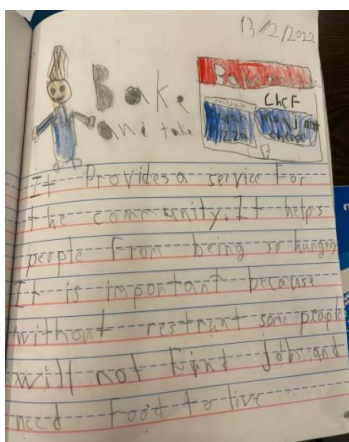 13/2/2022
Bake
and take
Chef
It Provides a service For
the community. It helps
people From being so hungry
It is important because
without restrint some people
will not Find jobs and
need Food to live